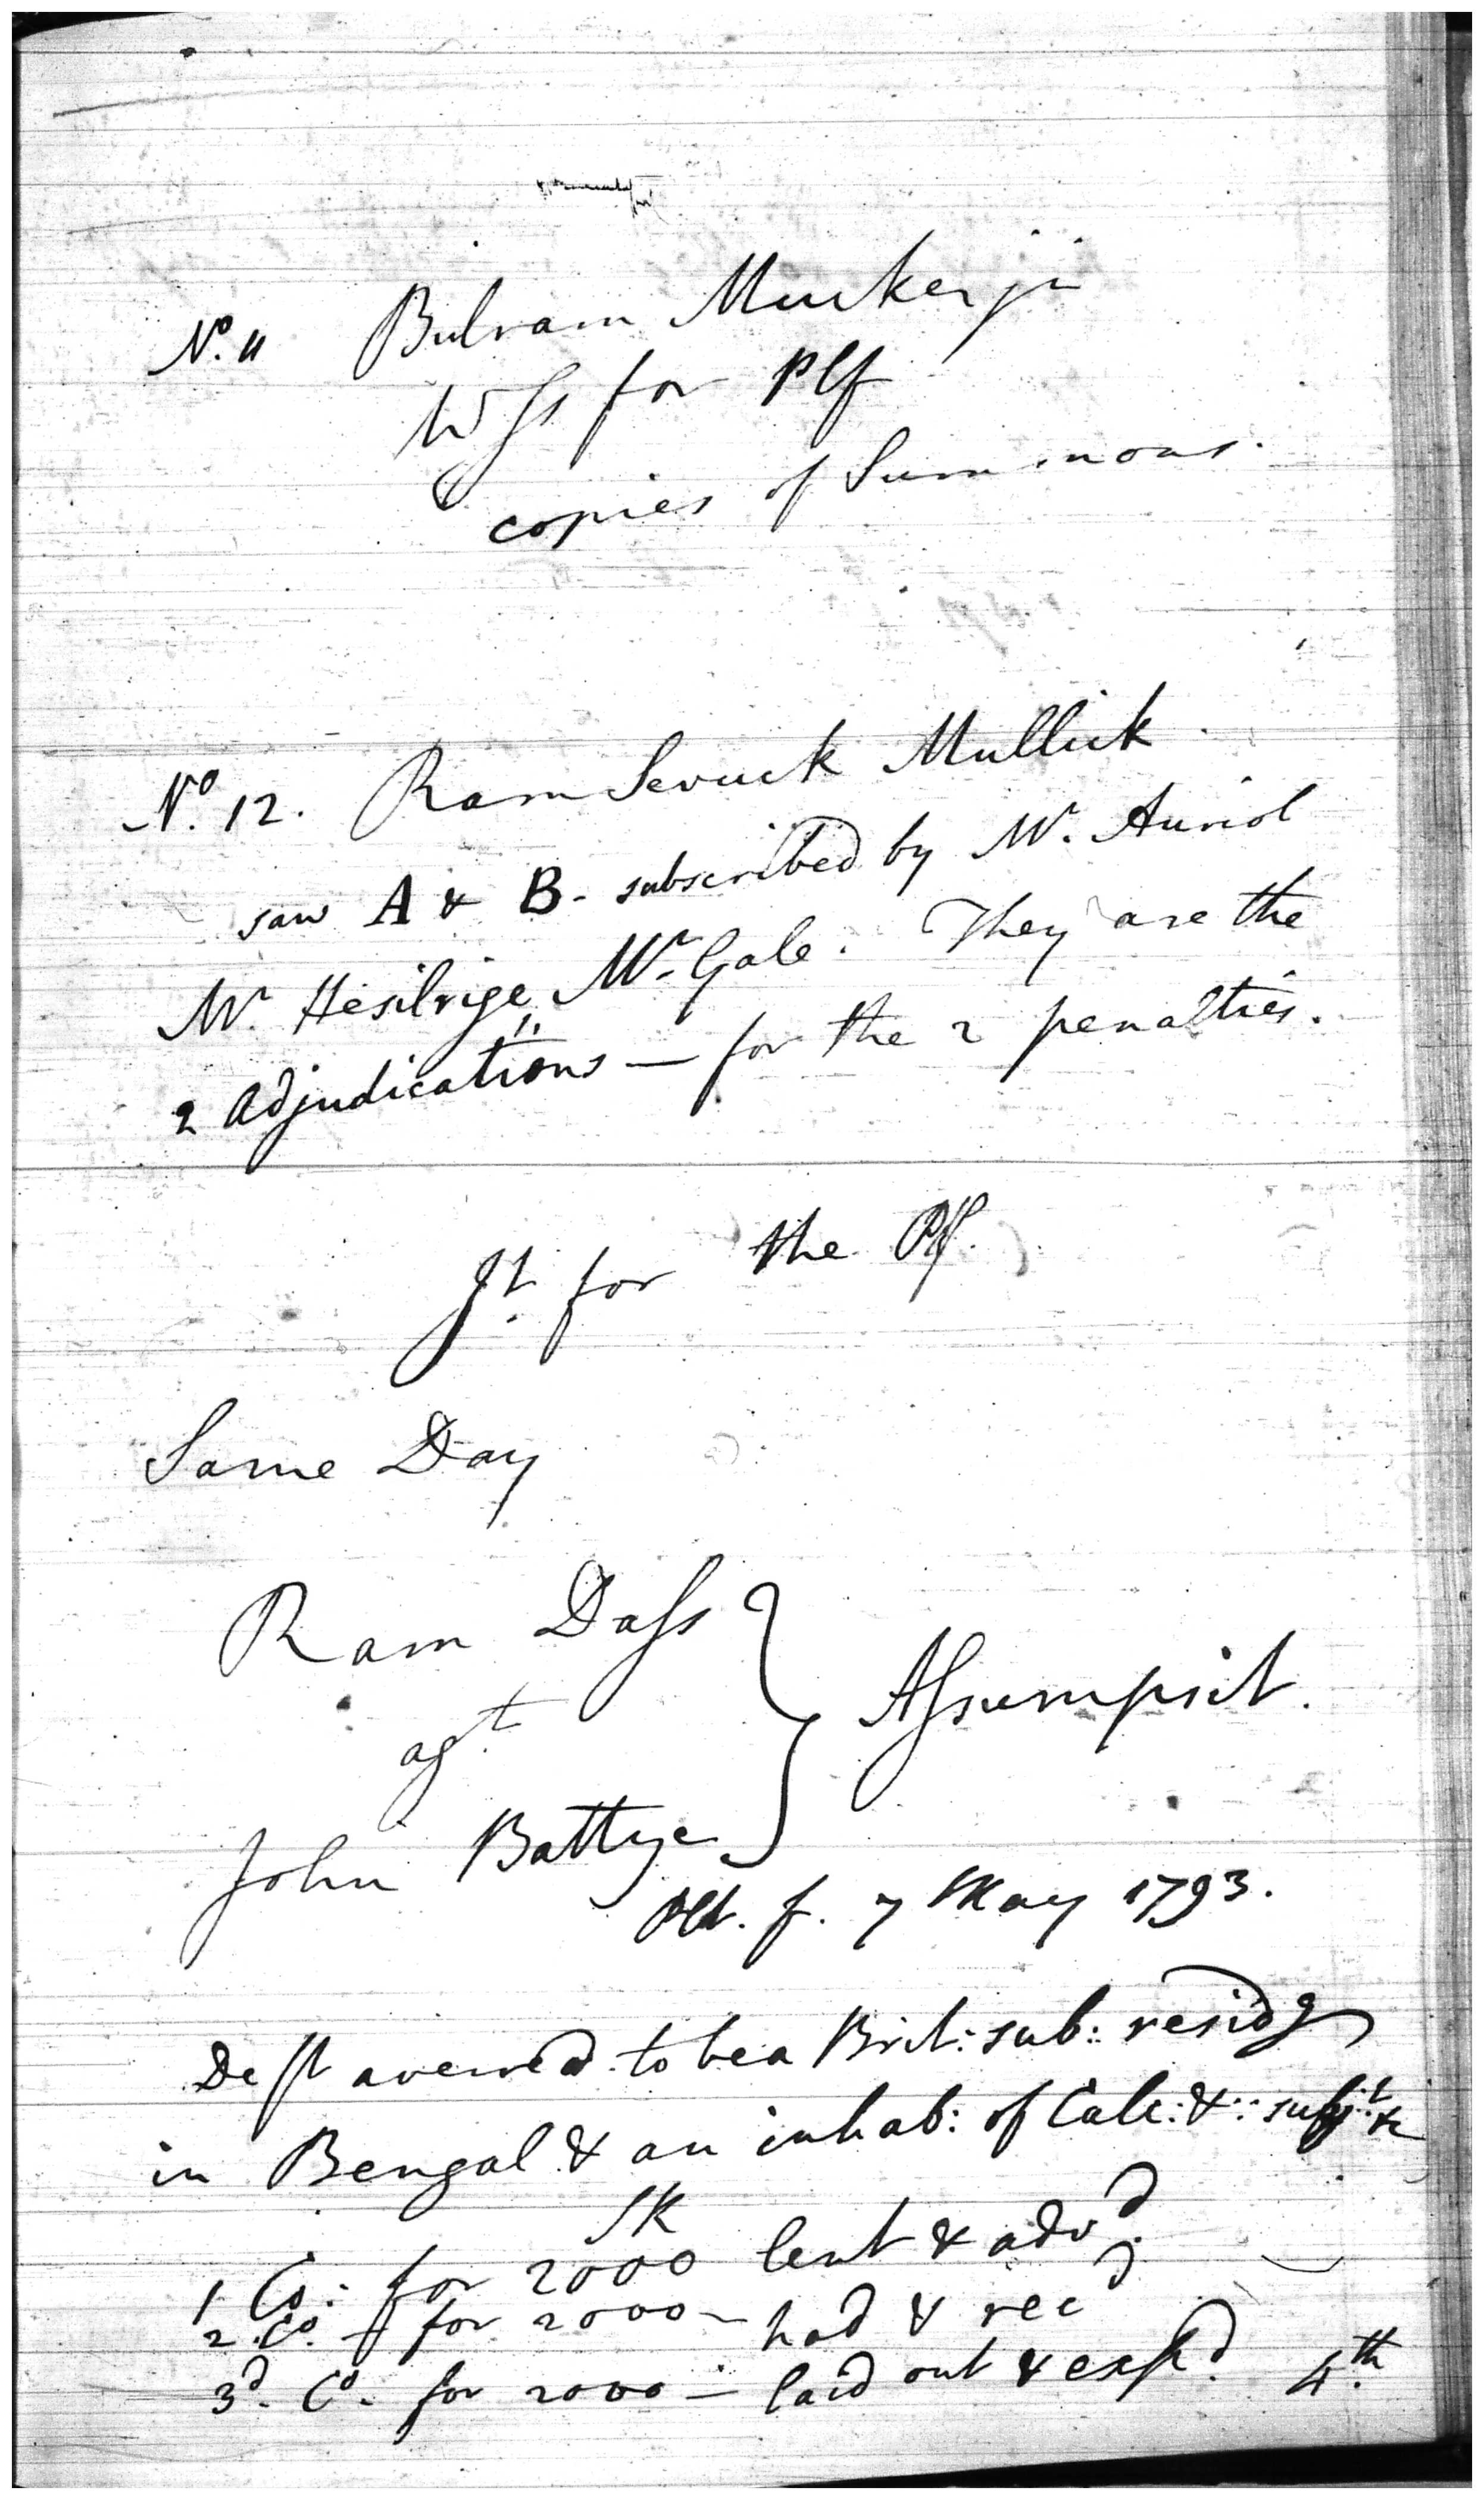 No. 11 Bulram Muckerji
Wss for Plf
copies of Summons.
No. 12. Ram Sevuck Mullick
saw A & B. subscribed by Mr. Auriol
Mr. Hesilrige, Mr. Gale. They are the
2 Adjudications — for the 2 penalties.
Jt. for the Plf.
Same Day
Ram Dass
agt. Assumpsit.
John Battye
Plt. f. 7 May 1793.
Deft averred to be a Brit: sub: residg
in Bengal & an inhab: of Calc: &: subjt: &c
SR
1 Co: for 2000 lent & advd.
2. Co. — for 2000 — had & recd
3d. Co. for 2000 — laid out & expd. 4th.